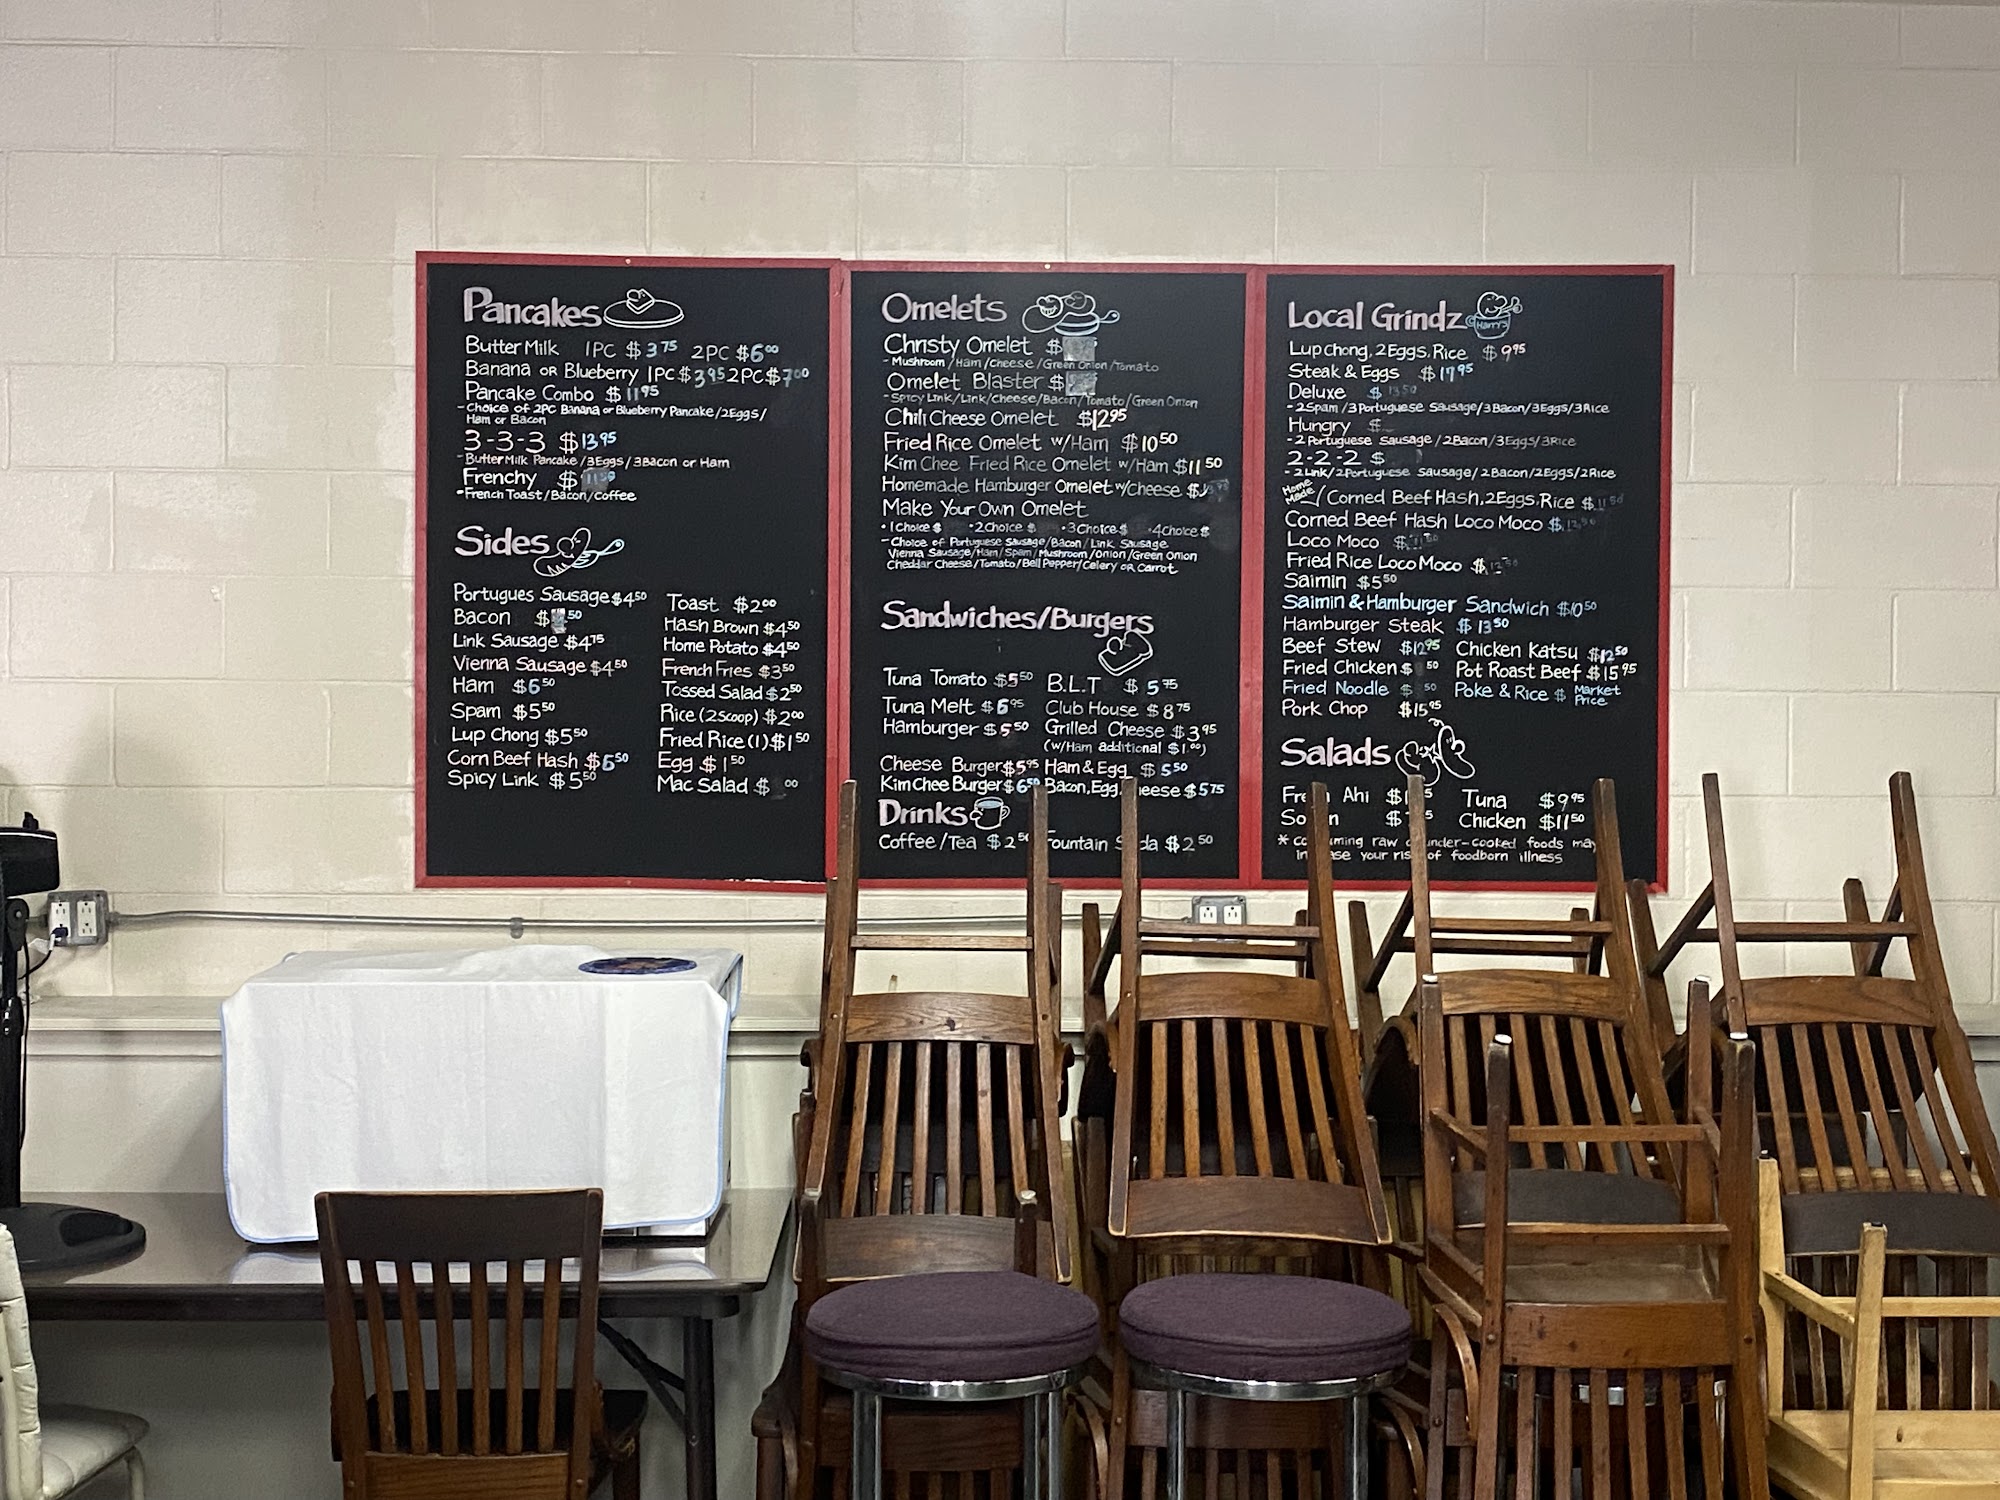 Pancakes
Butter Milk 1PC $3.75 2PC $6.00
Banana or Blueberry 1PC $3.95 2PC $7.00
Pancake Combo $11.95
- Choice of 2PC Banana or Blueberry Pancake/2Eggs/
Ham or Bacon
3-3-3 $13.95
- Butter Milk Pancake/3Eggs/3Bacon or Ham
Frenchy $
• French Toast/Bacon/Coffee
Sides
Portugues Sausage $4.50
Bacon $ .50
Link Sausage $4.75
Vienna Sausage $4.50
Ham $6.50
Spam $5.50
Lup Chong $5.50
Corn Beef Hash $6.50
Spicy Link $5.50
Toast $2.00
Hash Brown $4.50
Home Potato $4.50
French Fries $3.50
Tossed Salad $2.50
Rice (2scoop) $2.00
Fried Rice (1) $1.50
Egg $1.50
Mac Salad $ .00
Omelets
Christy Omelet $
- Mushroom/Ham/Cheese/Green Onion/Tomato
Omelet Blaster $
- Spicy Link/Link/Cheese/Bacon/Tomato/Green Onion
Chili Cheese Omelet $12.95
Fried Rice Omelet w/Ham $10.50
Kim Chee Fried Rice Omelet w/Ham $11.50
Homemade Hamburger Omelet w/cheese $
Make Your Own Omelet
• 1Choice $ • 2Choice $ • 3Choice $ • 4Choice $
- Choice of Portuguese Sausage/Bacon/Link Sausage
Vienna Sausage/Ham/Spam/Mushroom/Onion/Green Onion
Cheddar Cheese/Tomato/Bell Pepper/Celery or Carrot
Sandwiches/Burgers
Tuna Tomato $5.50
Tuna Melt $6.95
Hamburger $5.50
Cheese Burger $5.95
Kim Chee Burger $6.50
B.L.T $5.75
Club House $8.75
Grilled Cheese $3.95
(w/Ham additional $1.00)
Ham & Egg $5.50
Bacon, Egg, heese $5.75
Drinks
Coffee/Tea $2.50 Fountain S da $2.50
Local Grindz
Harry's
Lup chong, 2Eggs, Rice $9.95
Steak & Eggs $17.95
Deluxe $13.50
- 2Spam/3Portuguese Sausage/3Bacon/3Eggs/3Rice
Hungry $
- 2Portuguese Sausage/2Bacon/3Eggs/3Rice
2-2-2 $
- 2Link/2Portuguese Sausage/2Bacon/2Eggs/2Rice
Home Made Corned Beef Hash, 2Eggs, Rice $11.50
Corned Beef Hash Loco Moco $12.50
Loco Moco $
Fried Rice Loco Moco $12.50
Saimin $5.50
Saimin & Hamburger Sandwich $10.50
Hamburger Steak $13.50
Beef Stew $12.95
Fried Chicken $ .50
Fried Noodle $ .50
Pork Chop $15.95
Chicken Katsu $12.50
Pot Roast Beef $15.95
Poke & Rice $ Market Price
Salads
Fre h Ahi $1 5
So n $ 5
Tuna $9.95
Chicken $11.50
* co uming raw o under-cooked foods may
in ase your ris of foodborn illness